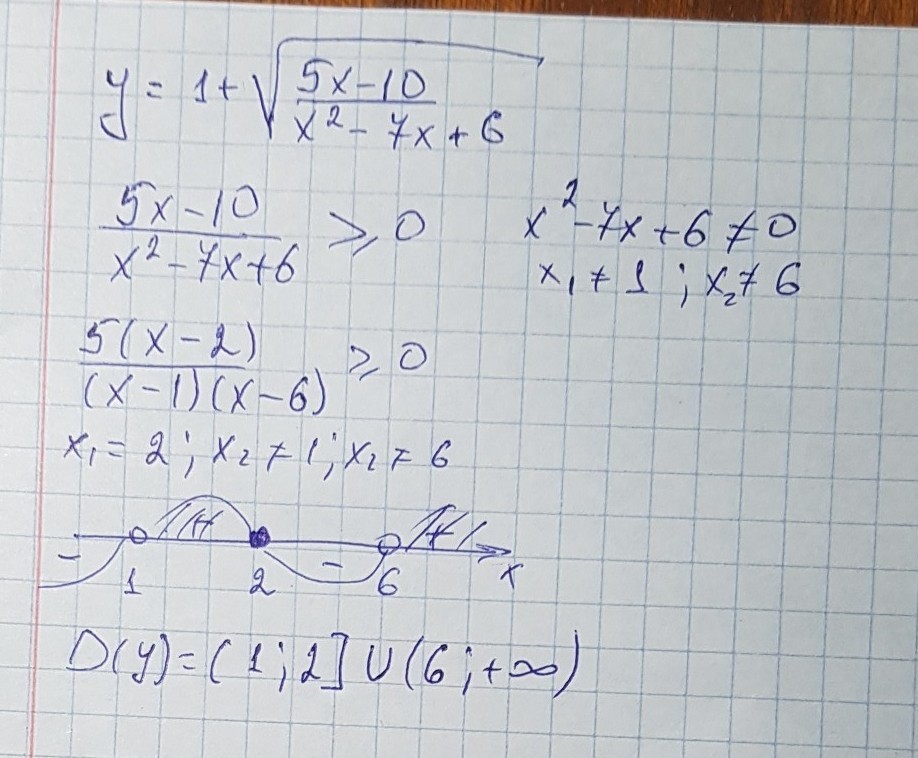 y = 1 + √((5x-10)/(x²-7x+6))
(5x-10)/(x²-7x+6) ⩾ 0    x²-7x+6 ≠ 0
x₁ ≠ 1 ; x₂ ≠ 6
5(x-2)/((x-1)(x-6)) ⩾ 0
x₁ = 2 ; x₂ ≠ 1 ; x₂ ≠ 6
- + - +
1 2 6 x
D(y) = (1 ; 2] ∪ (6 ; +∞)